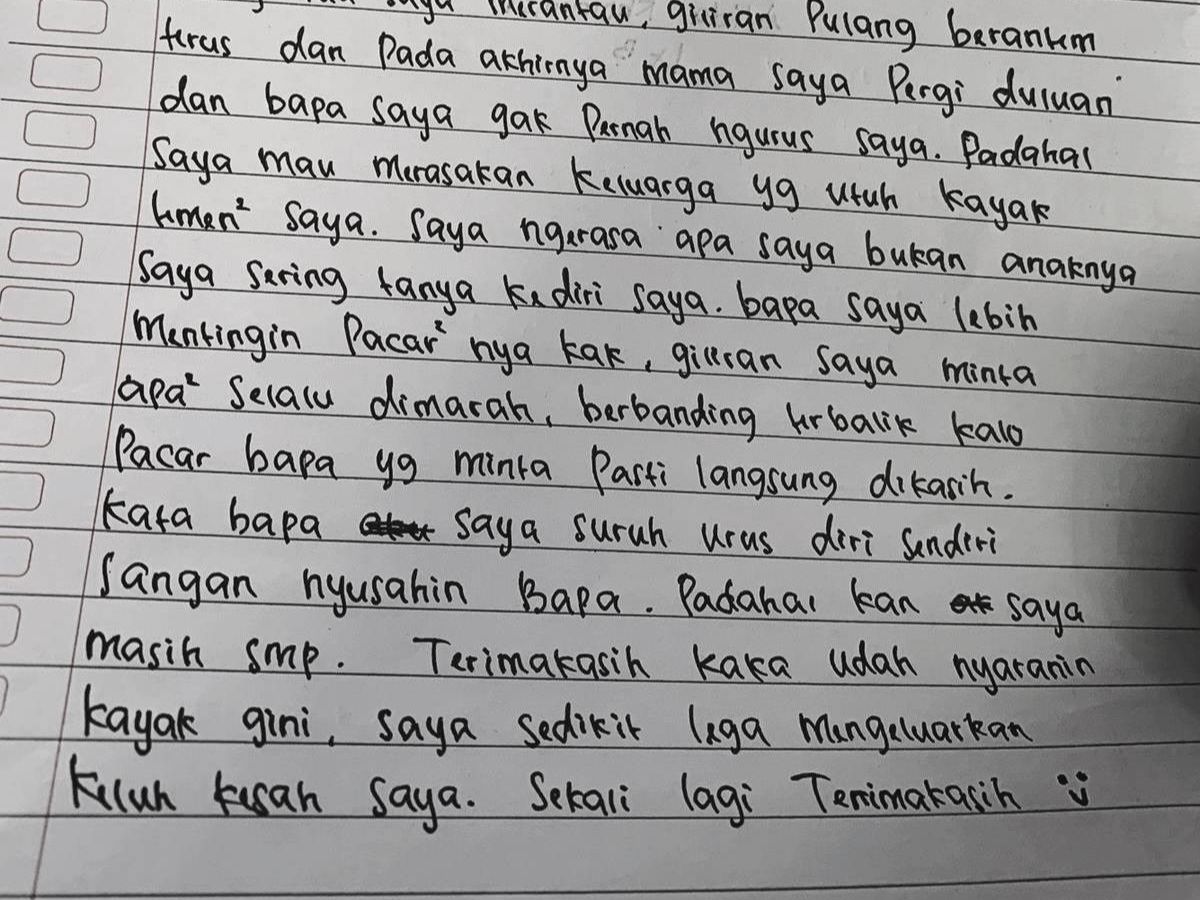 merantau, giliran Pulang berantem
terus dan Pada akhirnya mama saya Pergi duluan
dan bapa saya gak Pernah ngurus saya. Padahal
Saya mau Merasakan keluarga yg utuh kayak
temen² saya. Saya ngerasa apa saya bukan anaknya
Saya sering tanya kediri saya. bapa saya lebih
Mentingin Pacar² nya kak, giliran saya minta
apa² selalu dimarah, berbanding terbalik kalo
Pacar bapa yg minta Pasti langsung dikasih.
Kata bapa saya suruh urus diri sendiri
Jangan nyusahin Bapa. Padahal kan saya
masih smp. Terimakasih kaka udah nyaranin
kayak gini, saya sedikit lega mengeluarkan
keluh kesah saya. Sekali lagi Terimakasih :)